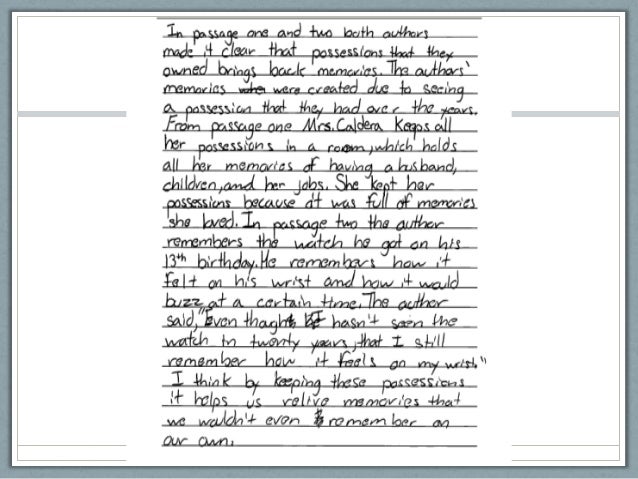 In passage one and two both authors
made it clear that possessions that they
owned brings back memories. The authors'
memories were created due to seeing
a possession that they had over the years.
From passage one Mrs. Caldera Keeps all
her possessions in a room, which holds
all her memories of having a husband,
children, and her jobs. She kept her
possessions because it was full of memories
she loved. In passage two the author
remembers the watch he got on his
13th birthday. He remembers how it
felt on his wrist and how it would
buzz at a certain time. The author
said, "Even though I hasn't seen the
watch in twenty years, that I still
remember how it feels on my wrist."
I think by keeping these possessions
it helps us relive memories that
we wouldn't even remember on
our own.